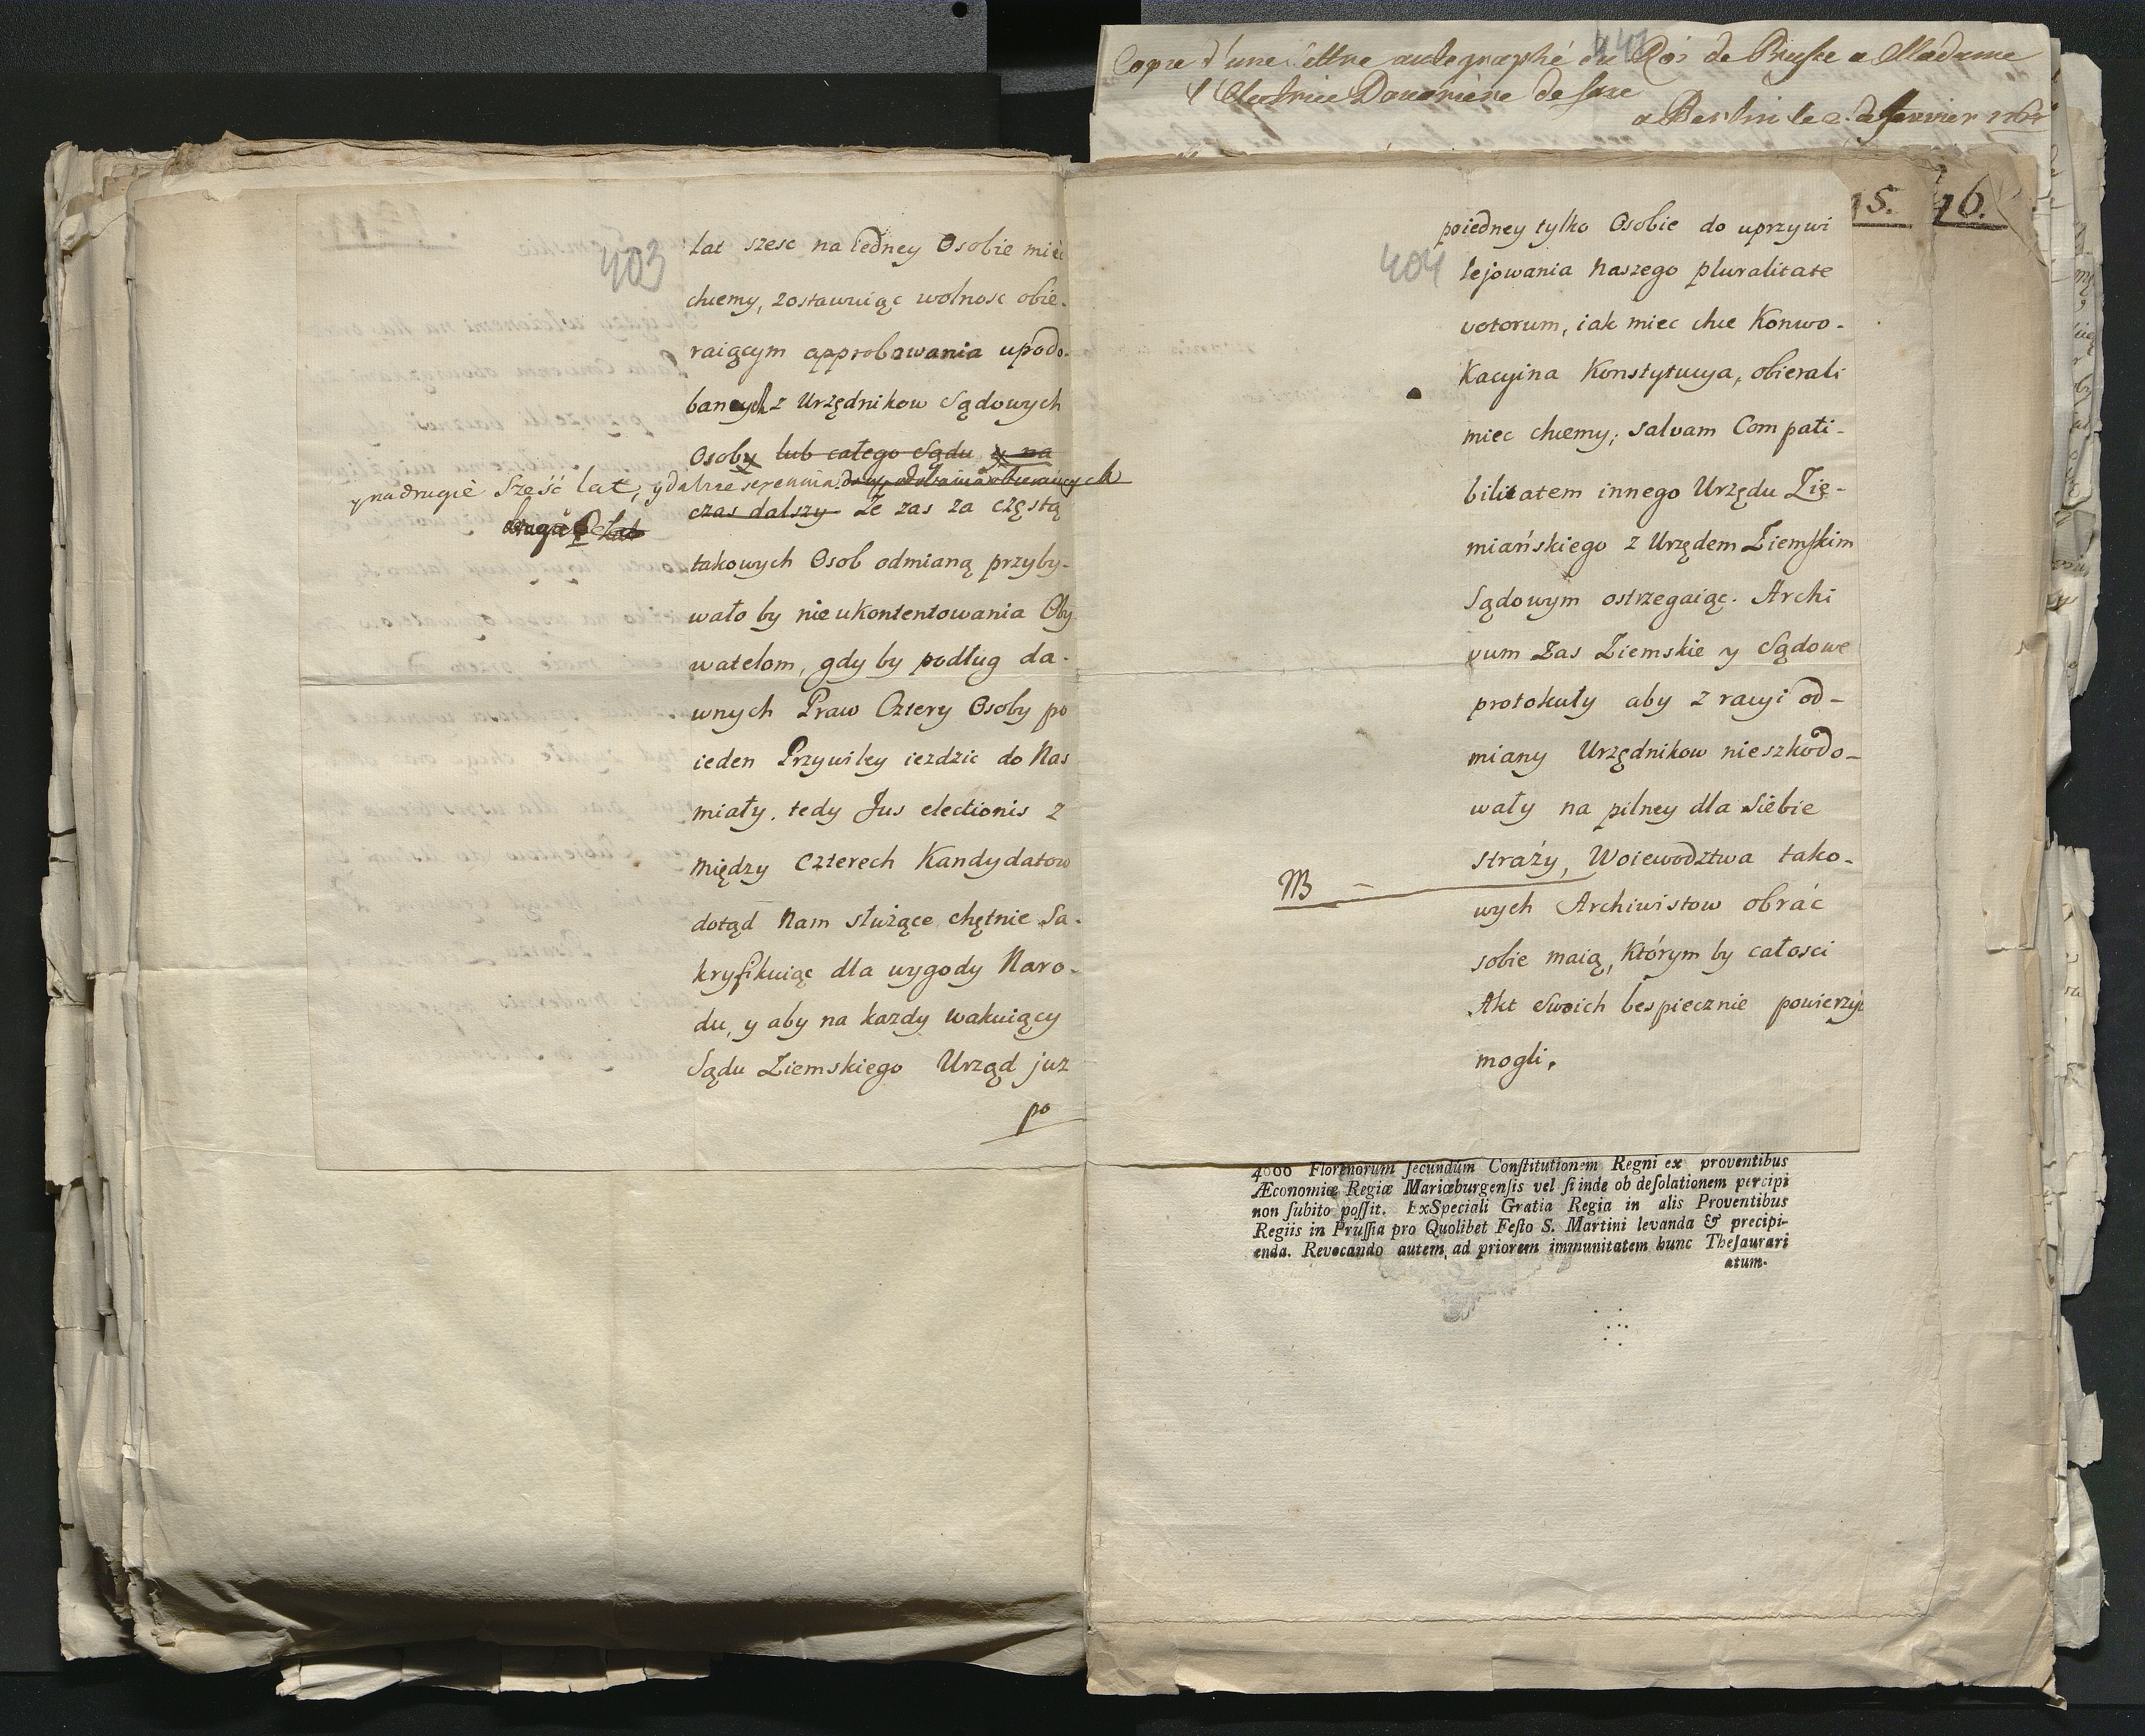 Copie d'une lettre autographé du Roi de Prusse a Madame
l'Electrice Douariere de Saxe
a Berlin le 2. de Janvier
403
lat szesc na iedney Osobie miec
chcemy, zostawuiąc wolnosc obie-
raiącym approbowania upodo-
banych z Urzędnikow Sądowych
Osoby lub całego Sądu y na
y na drugie sześć lat, y dalsze sexennia do upodobania obieraiących
czas dalszy Ze zas za częstą
drugie 6 lat
takowych Osob odmianą przyby-
wało by nieukontentowania Oby
watelom, gdy by podług da-
wnych Praw Cztery Osoby po
ieden Przywiley iezdzic do Nas
miały, tedy Jus electionis z
między czterech Kandydatow
dotąd Nam służące chętnie Sa-
kryfikuiąc dla wygody Naro-
du, y aby na kazdy wakuiący
Sądu Ziemskiego Urząd juz
po
15. 16.
404
poiedney tylko Osobie do uprzywi
lejowania Naszego pluralitate
votorum, iak miec chce Konwo-
kacyina Konstytucya, obierali
miec chcemy, salvam Compati-
bilitatem innego Urzędu Zie-
miańskiego z Urzędem Ziemskim
Sądowym ostrzegaiąc. Archi
vum zas Ziemskie y Sądowe
protokuły aby z racyi od-
miany Urzędnikow nieszkodo-
wały na pilney dla siebie
straży, Woiewodztwa tako-
NB
wych Archiwistow obrać
sobie maią, którym by całosci
Akt Swoich bespiecznie powierzyc
mogli.
4000 Florenorum secundum Constitutionem Regni ex proventibus
Æconomiæ Regiæ Mariæburgensis vel si inde ob desolationem percipi
non subito possit. ExSpeciali Gratia Regia in alis Proventibus
Regiis in Prussia pro Quolibet Festo S. Martini levanda & precipi-
enda. Revocando autem ad priorem immunitatem hunc Thesaurari
atum.